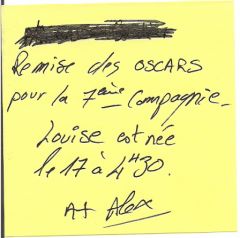 Remise des OSCARS
pour la 7ème Compagnie_
Louise est née
le 17 à 4H30.
A+ Alex